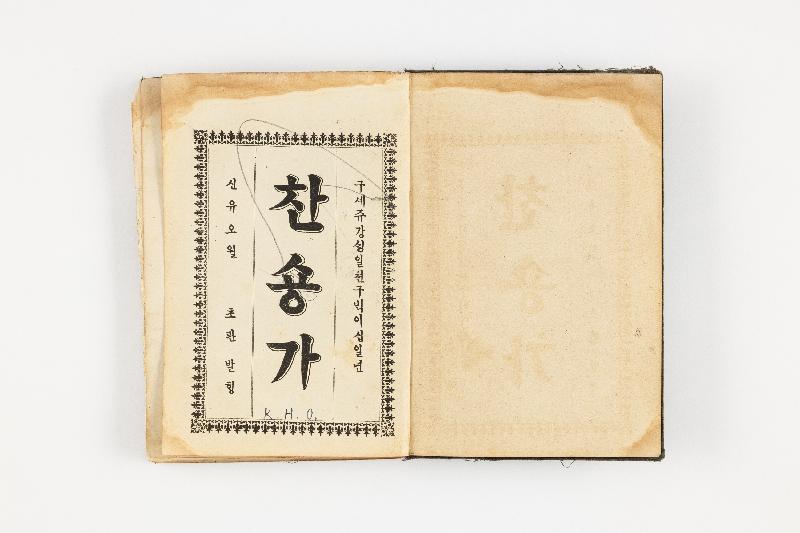 구세쥬강싱일천구빅이십일년
찬숑가
신유오월 초판발힝
K.H.O.